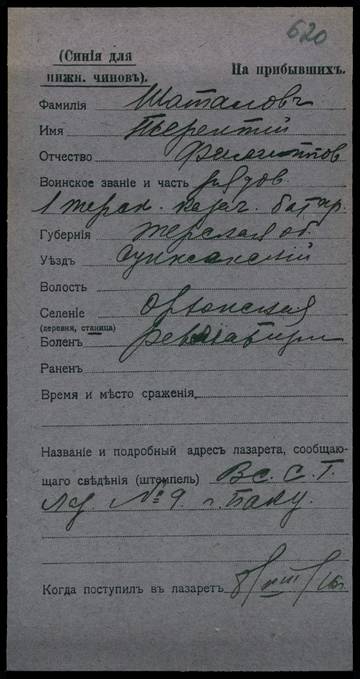 620
(Синія для
нижн. чиновъ).
На прибывшихъ.
Фамилія Шаталовъ
Имя Терентій
Отчество Филиппов
Воинское званіе и часть рядов.
1 терск. казач. батар.
Губернія Терская об.
Уѣздъ Сунженскій
Волость
Селеніе
(деревня, станица)
Боленъ
Раненъ
Время и мѣсто сраженія
Названіе и подробный адресъ лазарета, сообщаю-
щаго свѣдѣнія (штемпель) Вс. С. Г.
№ 9. г. Баку.
Когда поступилъ въ лазаретъ 8/VIII/16г.